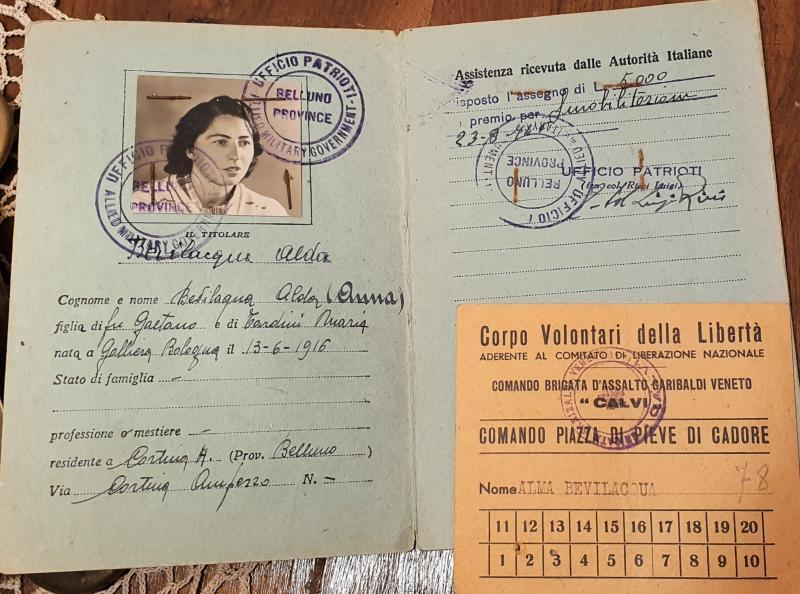 UFFICIO PATRIOTI
BELLUNO
PROVINCE
ALLIED MILITARY GOVERNMENT
UFFICIO PATRIOTI
BELLUNO
PROVINCE
ALLIED MILITARY
IL TITOLARE
Bevilacqua Alda
Cognome e nome Bevilaqua Alda (Anna)
figlia di fu Gaetano e di Tardini Maria
nata a Galliera Bologna il 13-6-1916
Stato di famiglia -
professione o mestiere -
residente a Cortina A. (Prov. Belluno)
Via Cortina Ampezzo N. -
Assistenza ricevuta dalle Autorità Italiane
isposto l'assegno di L. 5000
premio per smobilitazione
23-8
BELLUNO
PROVINCE
UFFICIO PATRIOTI
(ten. col. Ricci Luigi)
Corpo Volontari della Libertà
ADERENTE AL COMITATO DI LIBERAZIONE NAZIONALE
COMANDO BRIGATA D'ASSALTO GARIBALDI VENETO
"CALVI"
COMANDO PIAZZA DI PIEVE DI CADORE
78
Nome ALMA BEVILACQUA
11 12 13 14 15 16 17 18 19 20
1 2 3 4 5 6 7 8 9 10